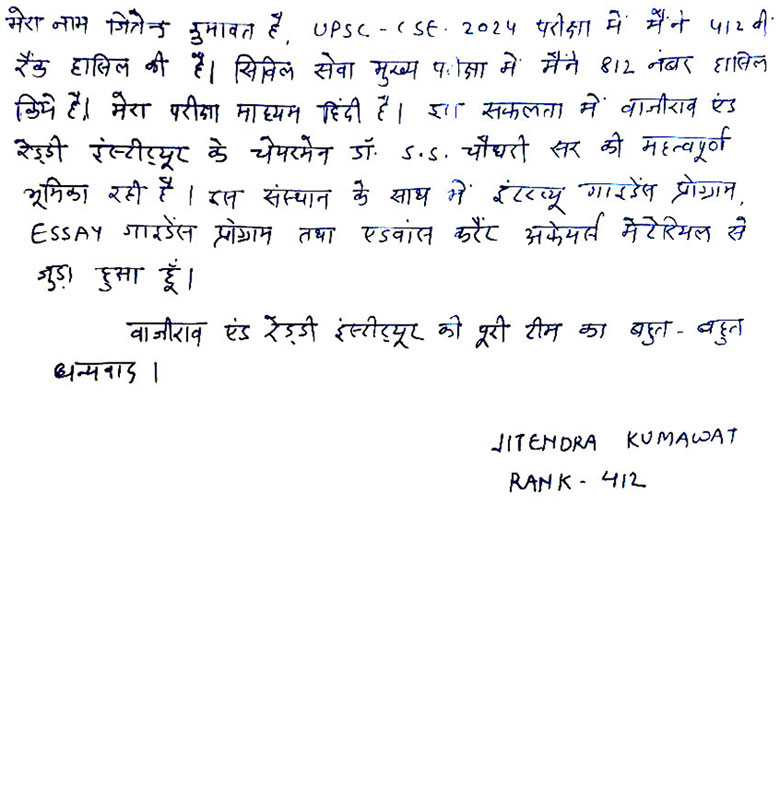 मेरा नाम जितेन्द्र कुमावत है, UPSC - CSE. 2024 परीक्षा में मैंने 412 वीं
रैंक हासिल की है। सिविल सेवा मुख्य परीक्षा में मैंने 812 नंबर हासिल
किये है। मेरा परीक्षा माध्यम हिंदी है। इस सफलता में वाजीराव एंड
रेड्डी इंस्टीट्यूट के चेयरमेन डॉ. S.S. चौधरी सर की महत्वपूर्ण
भूमिका रही है। इस संस्थान के साथ में इंटरव्यू गाइडेंस प्रोग्राम,
ESSAY गाइडेंस प्रोग्राम तथा एडवांस करैंट अफेयर्स मेटेरियल से
जुड़ा हुआ हूँ।
वाजीराव एंड रेड्डी इंस्टीट्यूट की पूरी टीम का बहुत - बहुत
धन्यवाद।
JITENDRA KUMAWAT
RANK - 412